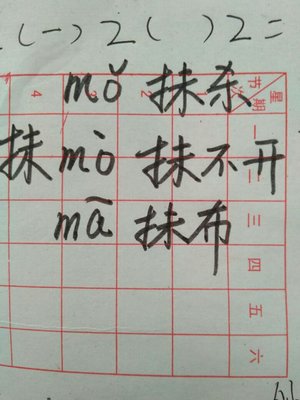 (一) 2 ( ) 2 =
mǒ 抹杀
抹 mò 抹不开
mā 抹布
星期
节次
4 3 2 1
一
二
三
四
五
六